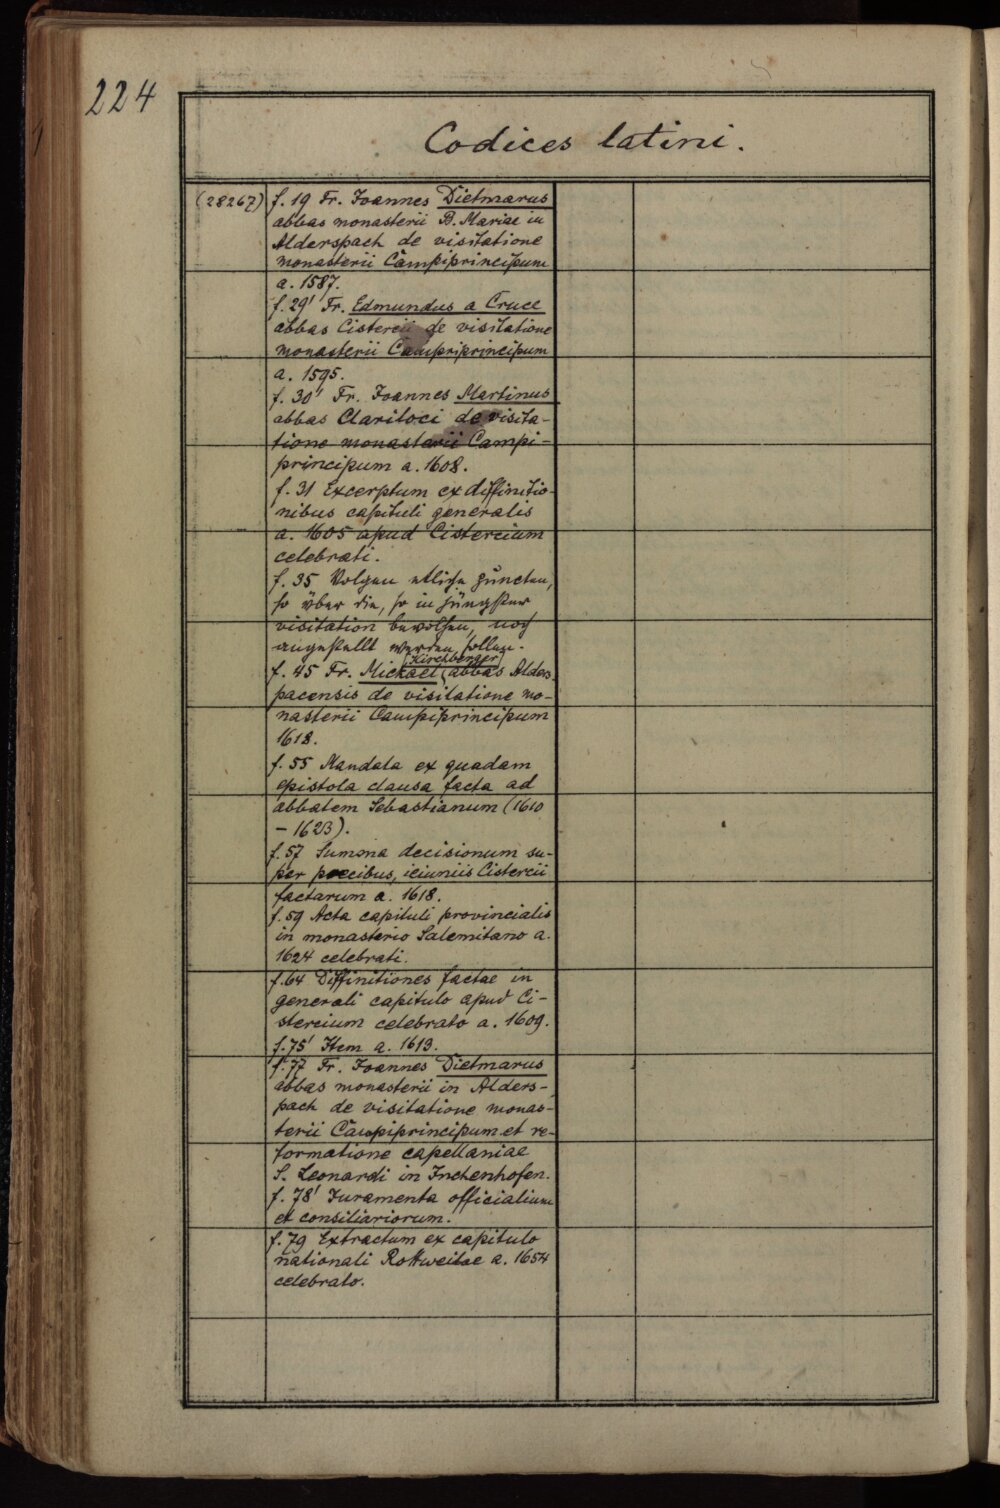 224
Codices latini.
(28267) f. 19 Fr. Joannes Dietmarus
abbas monasterii B. Mariae in
Alderspach de visitatione
monasterii Campiprincipum
a. 1587.
f. 29' Fr. Edmundus a Cruce
abbas Cistercii de visitatione
monasterii Campiprincipum
a. 1595.
f. 30' Fr. Joannes Martinus
abbas Clariloci de visita-
tione monasterii Campi-
principum a. 1608.
f. 31 Excerptum ex diffinitio-
nibus capituli generalis
a. 1605 apud Cistercium
celebrati.
f. 35 Volgen etliche puncten,
so über die, so in jüngster
visitation bevolhen, noch
angestellt werden sollen.
(Kirchberger)
f. 45 Fr. Michael abbas Alders
pacensis de visitatione mo-
nasterii Campiprincipum
1618.
f. 55 Mandata ex quadam
epistola clausa facta ad
abbatem Sebastianum (1610
– 1623).
f. 57 Summa decisionum su-
per precibus, ieiuniis Cistercii
factarum a. 1618.
f. 59 Acta capituli provincialis
in monasterio Salemitano a.
1624 celebrati.
f. 64 Diffinitiones factae in
generali capitulo apud Ci-
stercium celebrato a. 1609.
f. 75' Item a. 1613.
f. 77 Fr. Joannes Dietmarus
abbas monasterii in Alders-
pach de visitatione monas-
terii Campiprincipum et re-
formatione capellaniae
S. Leonardi in Inchenhofen.
f. 78' Juramenta officialium
et consiliariorum.
f. 79 Extractum ex capitulo
nationali Rottweilae a. 1654
celebrato.